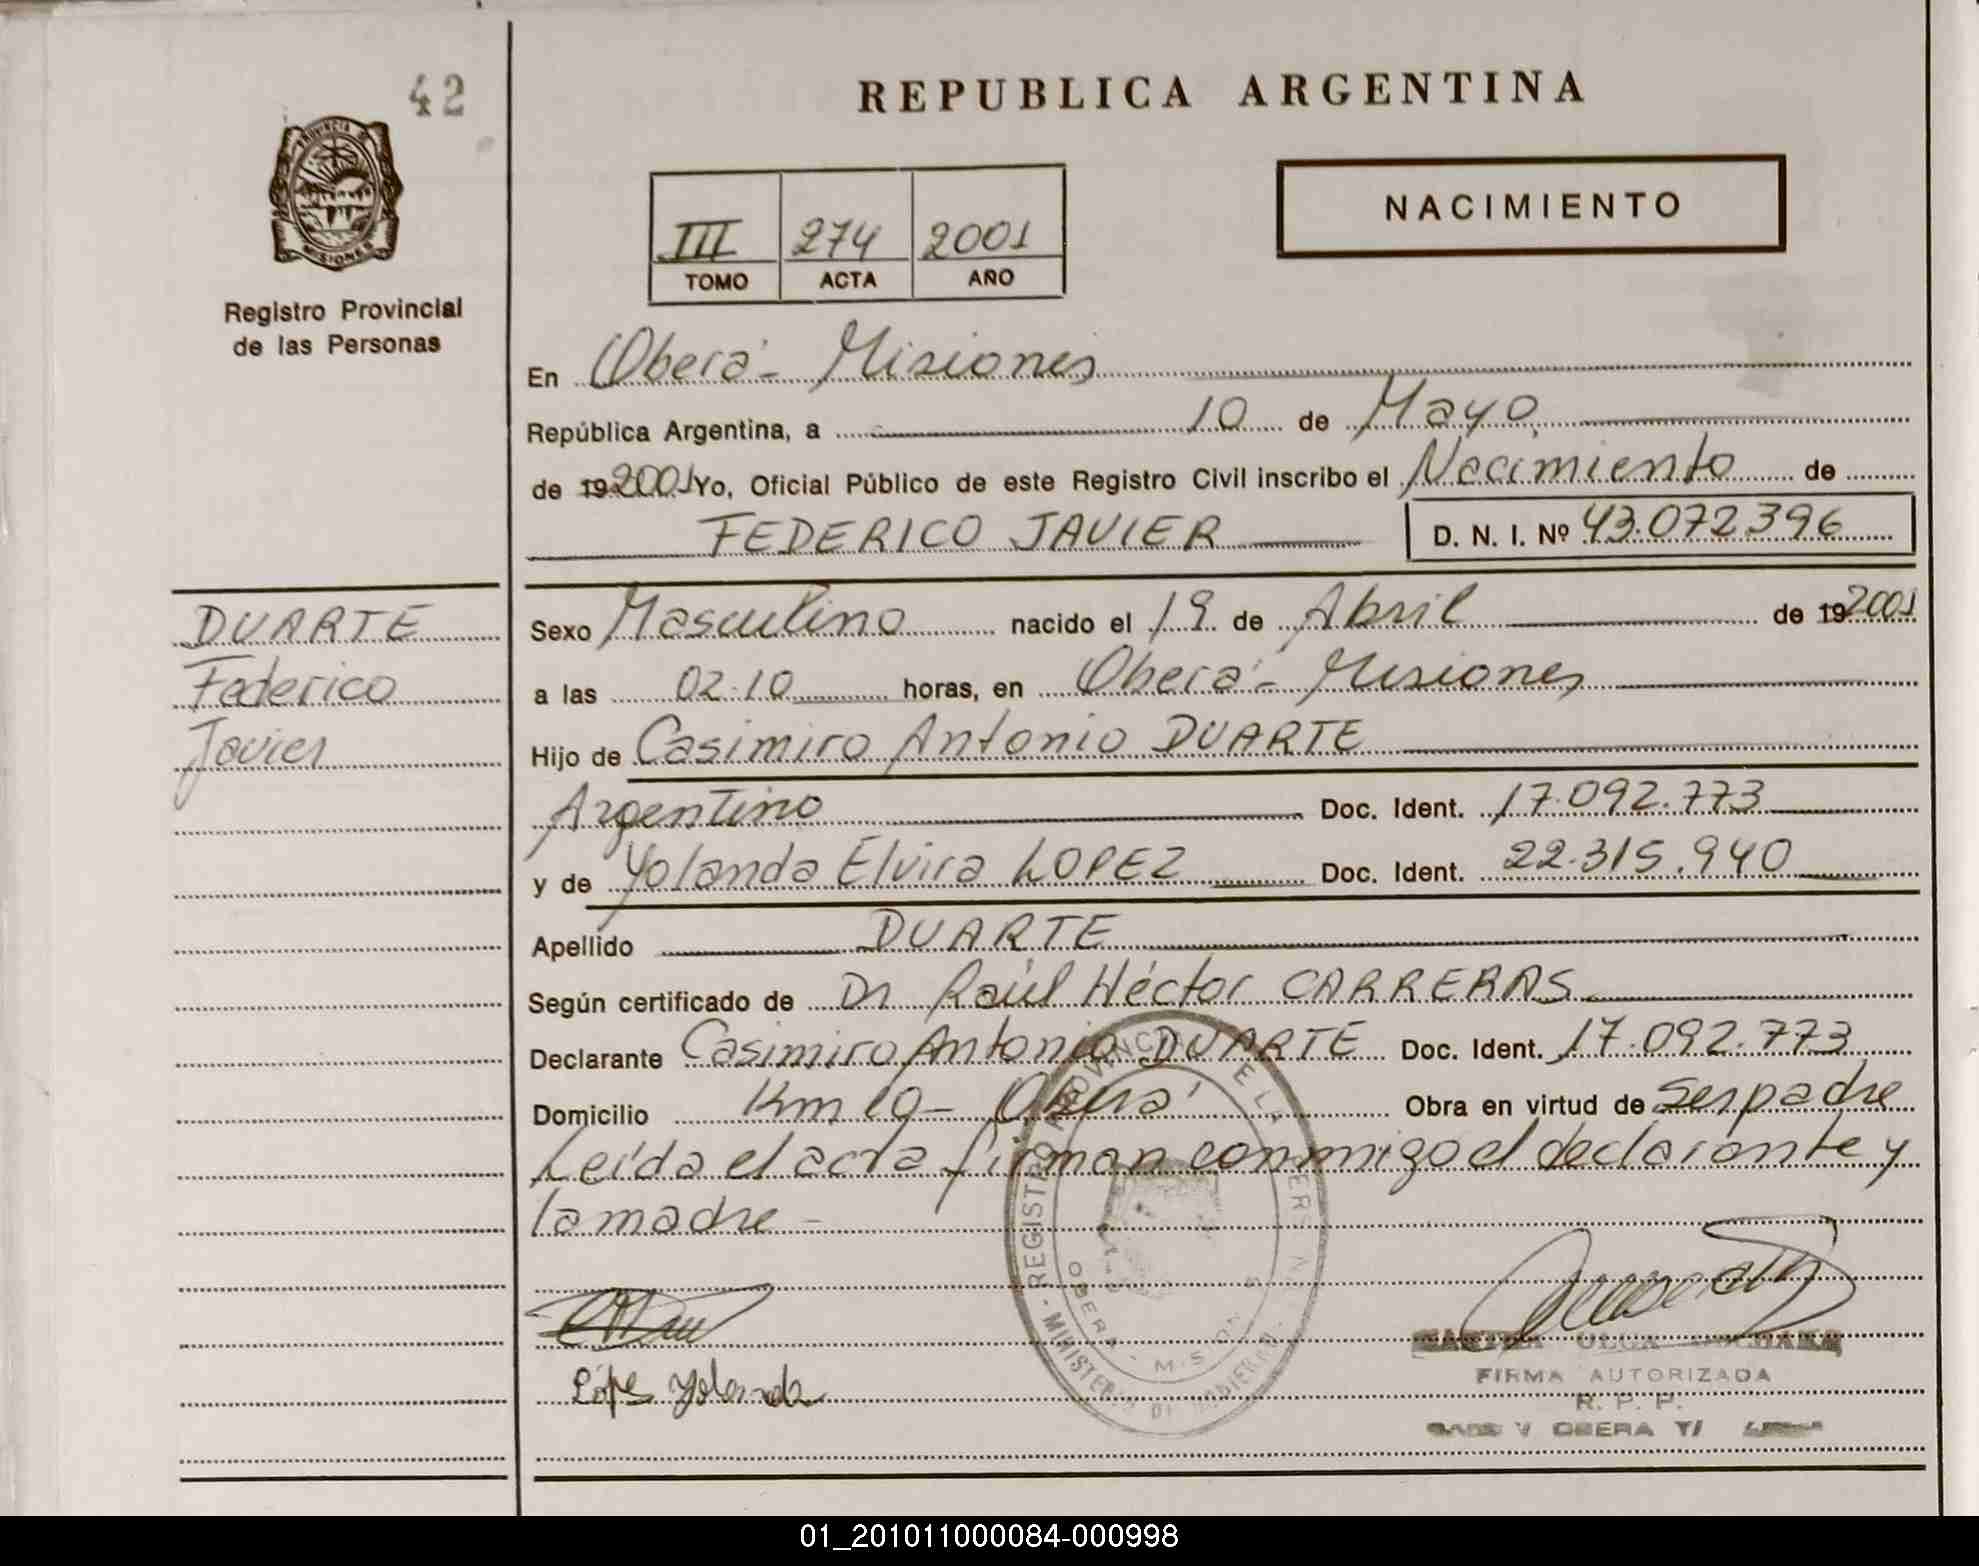 42
REPUBLICA ARGENTINA
PROVINCIA DE
MISIONES
Registro Provincial
de las Personas
III 274 2001
TOMO ACTA AÑO
NACIMIENTO
En Oberá - Misiones
República Argentina, a 10 de Mayo
de 192001 Yo, Oficial Público de este Registro Civil inscribo el Nacimiento de
FEDERICO JAVIER D. N. I. Nº 43.072.396
DUARTE
Federico
Javier
Sexo Masculino nacido el 19 de Abril de 192001
a las 02:10 horas, en Oberá - Misiones
Hijo de Casimiro Antonio DUARTE
Argentino Doc. Ident. 17.092.773
y de Yolanda Elvira LOPEZ Doc. Ident. 22.315.940
Apellido DUARTE
Según certificado de Dr Raúl Héctor CARRERAS
Declarante Casimiro Antonio DUARTE Doc. Ident. 17.092.773
Domicilio Km 10 - Oberá Obra en virtud de ser padre
Leída el acta firman conmigo el declarante y
la madre -
Yolanda
OLGA
FIRMA AUTORIZADA
R. P. P.
OBERA
REGISTRO PROVINCIAL DE LAS PERSONAS
OBERA - MISIONES
MINISTERIO DE GOBIERNO
01_201011000084-000998